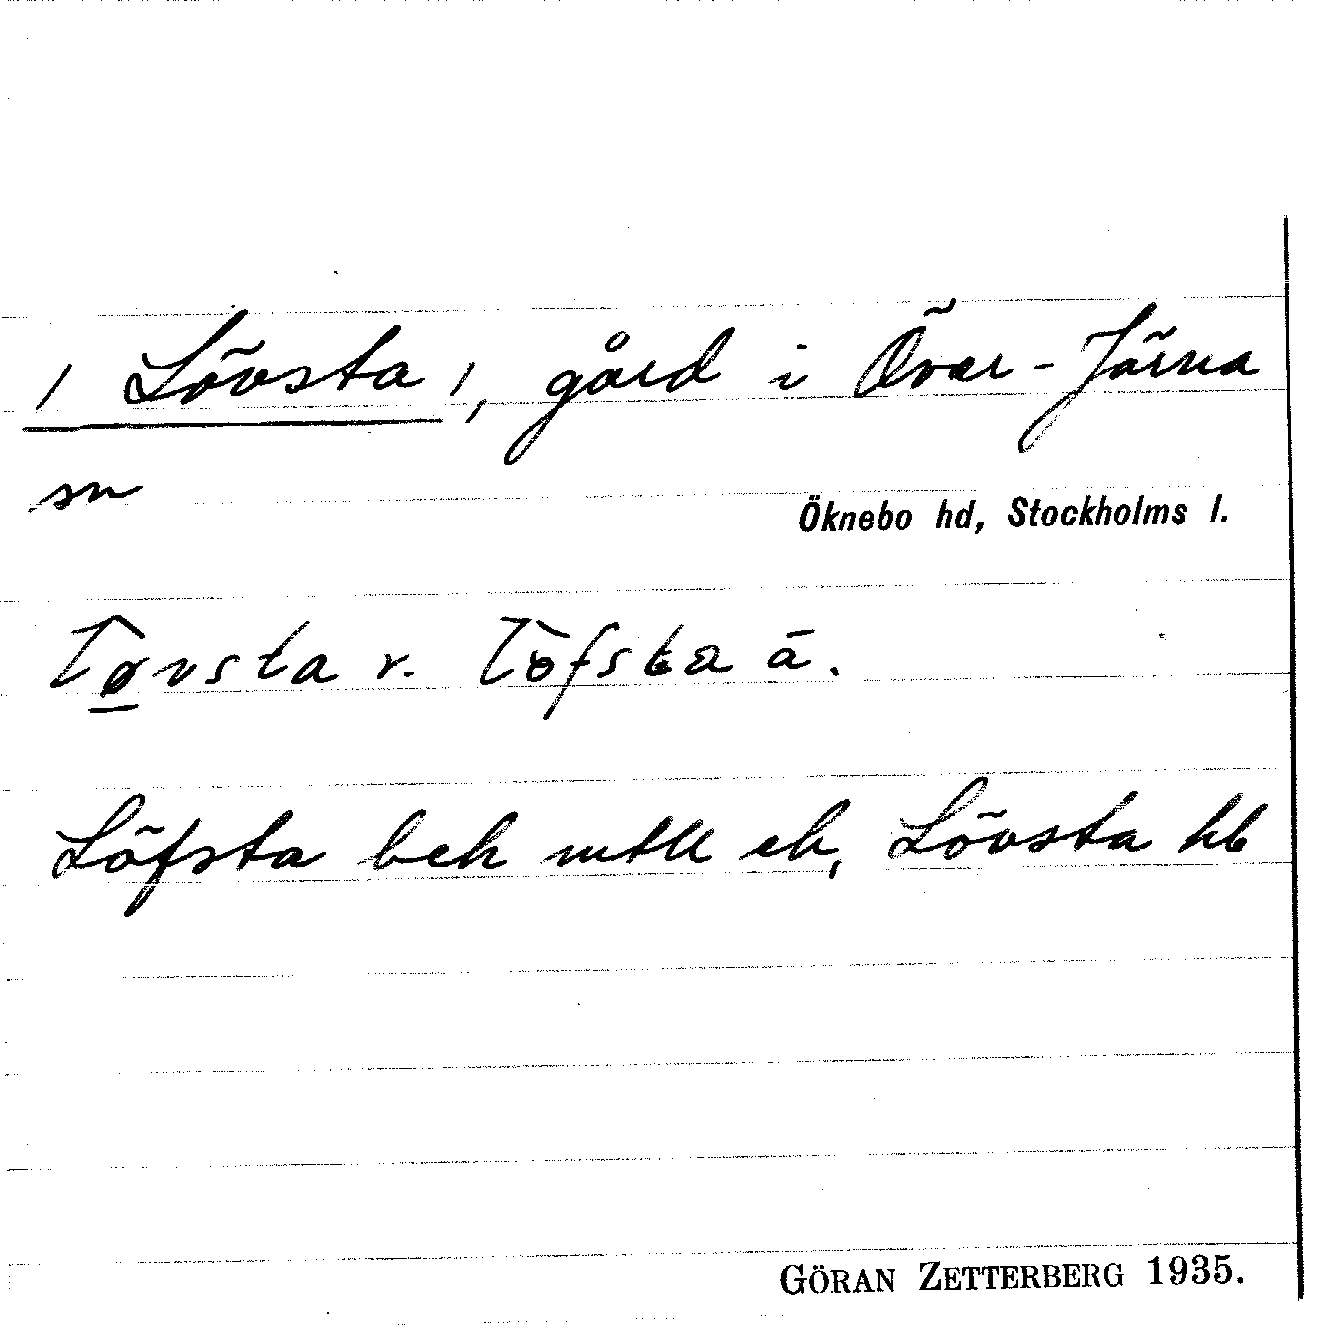 / Lövsta /, gård i Över-Järna
sn
Öknebo hd, Stockholms l.
Løvsta v. Löfsta ä.
Löfsta bek mtll ek, Lövsta hb
GÖRAN ZETTERBERG 1935.